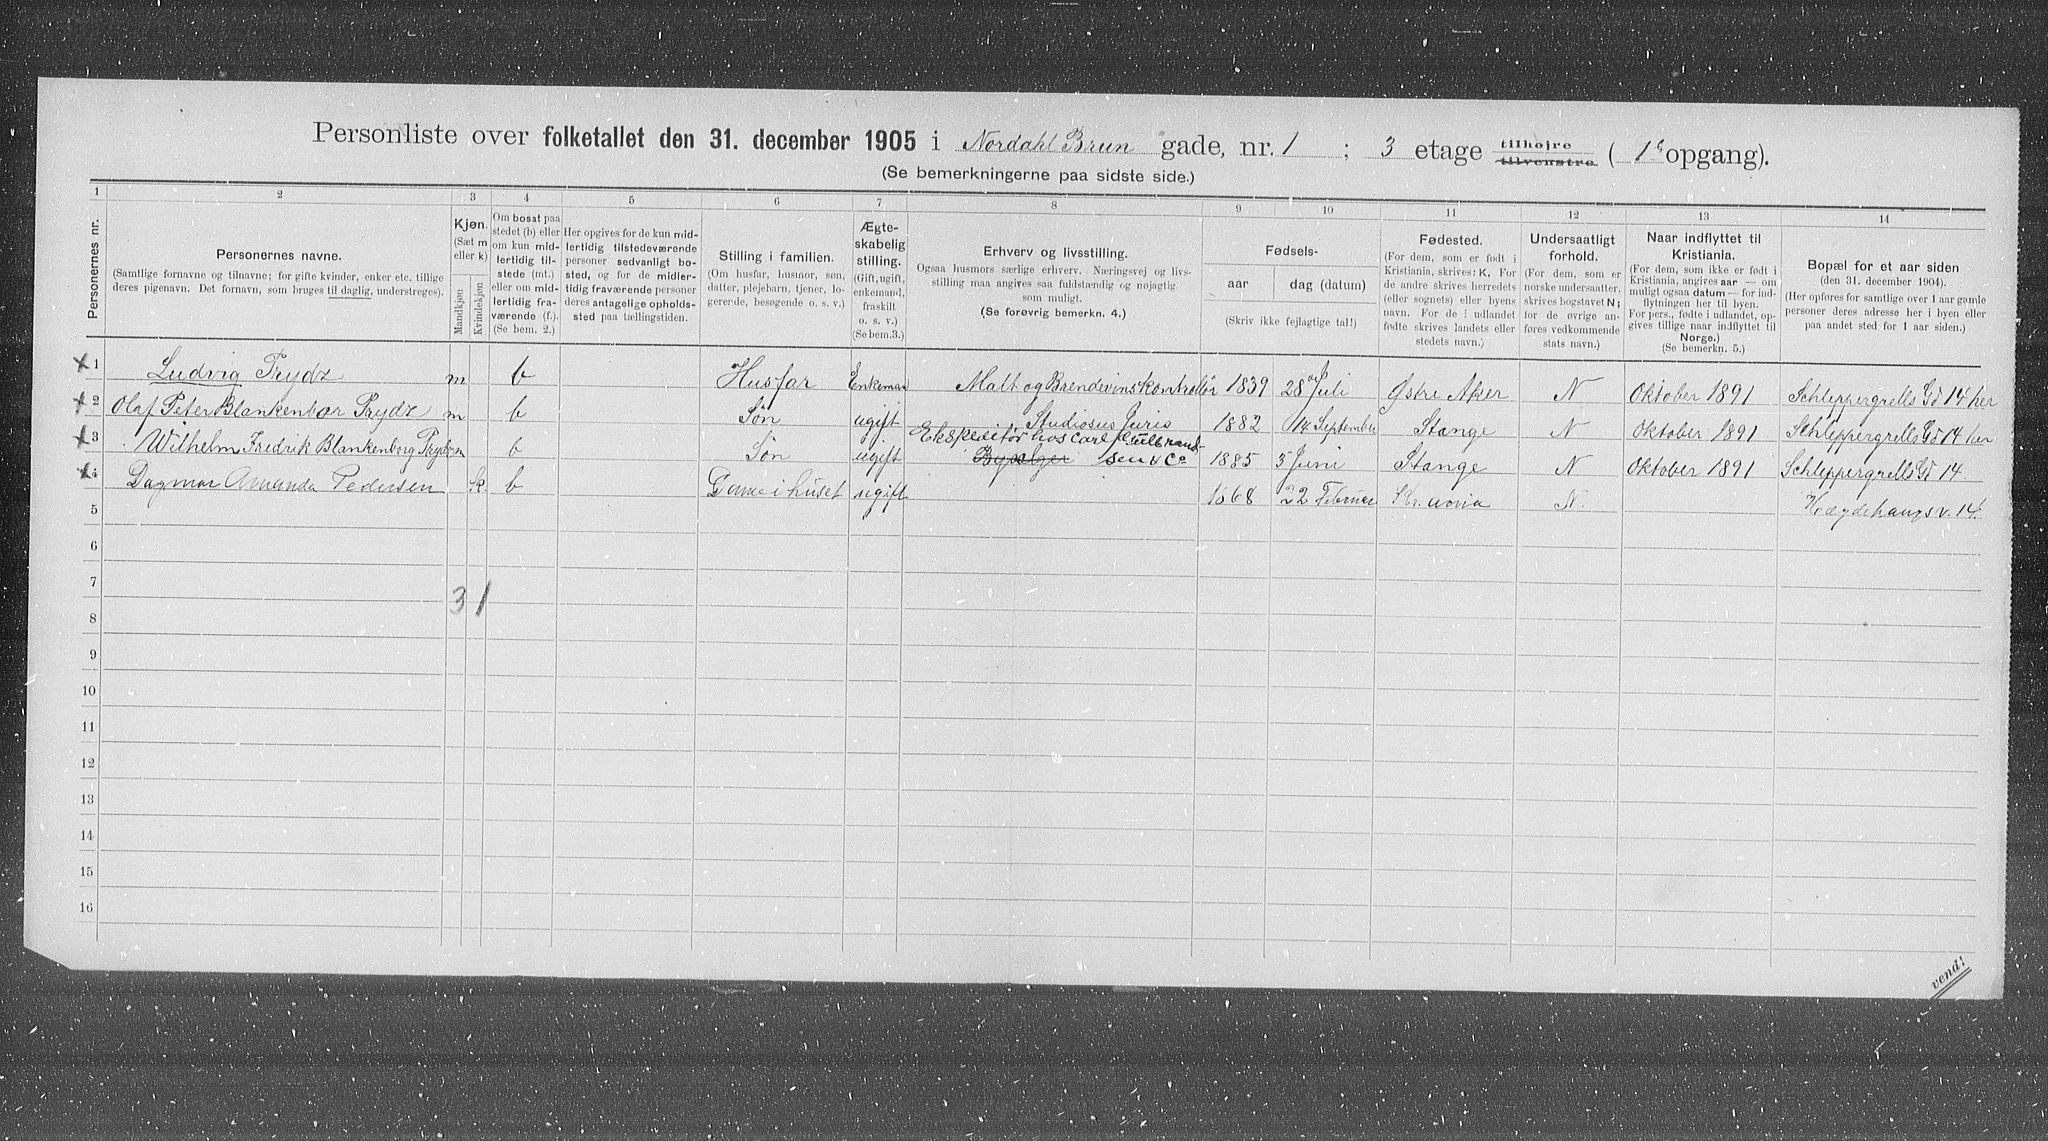 Personliste over folketallet den 31. december 1905 i Nordahl Brun gade, nr. 1 ; 3 etage tilhøjre tilvenstre ( 1s opgang).
(Se bemerkningerne paa sidste side.)
1 2 3 4 5 6 7 8 9 10 11 12 13 14
Personernes nr.
Personernes navne.
(Samtlige fornavne og tilnavne; for gifte kvinder, enker etc. tillige
deres pigenavn. Det fornavn, som bruges til daglig, understreges).
Kjøn.
(Sæt m
eller k)
Mandkjøn
Kvindekjøn
Om bosat paa
stedet (b) eller
om kun mid-
lertidig til-
stede (mt.)
eller om mid-
lertidig fra-
værende (f.).
(Se bem. 2.)
Her opgives for de kun mid-
lertidig tilstedeværende
personer sedvanlig bo-
sted, og for de midler-
tidig fraværende personer
deres antagelige opholds-
sted paa tællingstiden.
Stilling i familien.
(Om husfar, husmor, søn,
datter, plejebarn, tjener, lo-
gerende, besøgende o. s. v.)
Ægte-
skabelig
stilling.
(Gift, ugift,
enkemand,
fraskilt
o. s. v.)
(Se bem.3.)
Erhverv og livsstilling.
Ogsaa husmors særlige erhverv. Næringsvej og livs-
stilling maa angives saa fuldstændig og nøjagtig
som muligt.
(Se forøvrig bemerkn. 4.)
Fødsels-
aar
dag (datum)
(Skriv ikke fejlagtige tal!)
Fødested.
(For dem, som er født i
Kristiania, skrives: K. For
de andre skrives herredets
(eller sognets) eller byens
navn. For de i udlandet
fødte skrives landets eller
stedets navn.)
Undersaatligt
forhold.
(For dem, som er
norske undersaatter,
skrives bogstavet N;
for de øvrige an-
føres vedkommende
stats navn.)
Naar indflyttet til
Kristiania.
(For dem, som ikke er født i
Kristiania, angives aar — om
muligt ogsaa datum — for ind-
flytningen her til byen.
For pers., fødte i udlandet, op-
gives tillige naar indflyttet til
Norge.)
(Se bemerkn. 5.)
Bopæl for et aar siden
(den 31. december 1904).
(Her opføres for samtlige over 1 aar gamle
personer deres adresse her i byen eller
paa andet sted for 1 aar siden.)
1 Ludvig Trydz m b Husfar Enkeman Malt og Brendevinskontrollør 1839 28 Juli Østre Aker N Oktober 1891 Schleppergrells Gd 14 her
2 Olaf Peter Blankenbor Trydz m b Søn ugift Studiosus Juris 1882 14 September Stange N Oktober 1891 Schleppergrells Gd 14 her
3 Wilhelm Fredrik Blankenborg Trydz m b Søn ugift Ekspeditør hos Carl Gulbrand-
sen & Co 1885 3 Juni Stange N Oktober 1891 Schleppergrells Gd 14.
4 Dagmar Amanda Pedersen k. b Dame i huset ugift 1868 22 Februar N. Hægdehaugsv. 14.
5
6
7
3 1
8
9
10
11
12
13
14
15
16
vend!